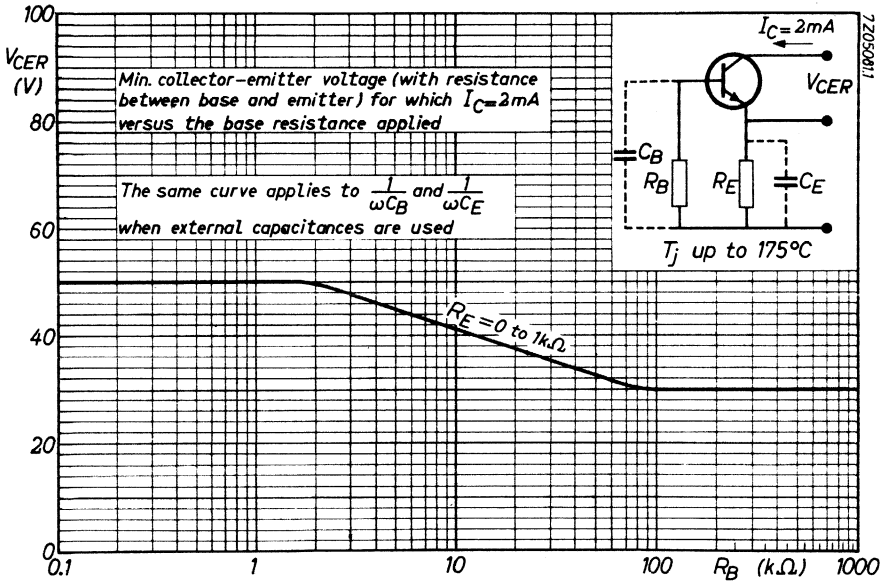 100
V_CER
(V)
80
60
40
20
0
0.1
1
10
100
R_B (kΩ)
1000
Min. collector-emitter voltage (with resistance
between base and emitter) for which I_C=2mA
versus the base resistance applied
The same curve applies to 1/ωC_B and 1/ωC_E
when external capacitances are used
R_E=0 to 1kΩ
I_C=2mA
V_CER
C_B
R_B
R_E
C_E
T_j up to 175°C
7Z05081.1